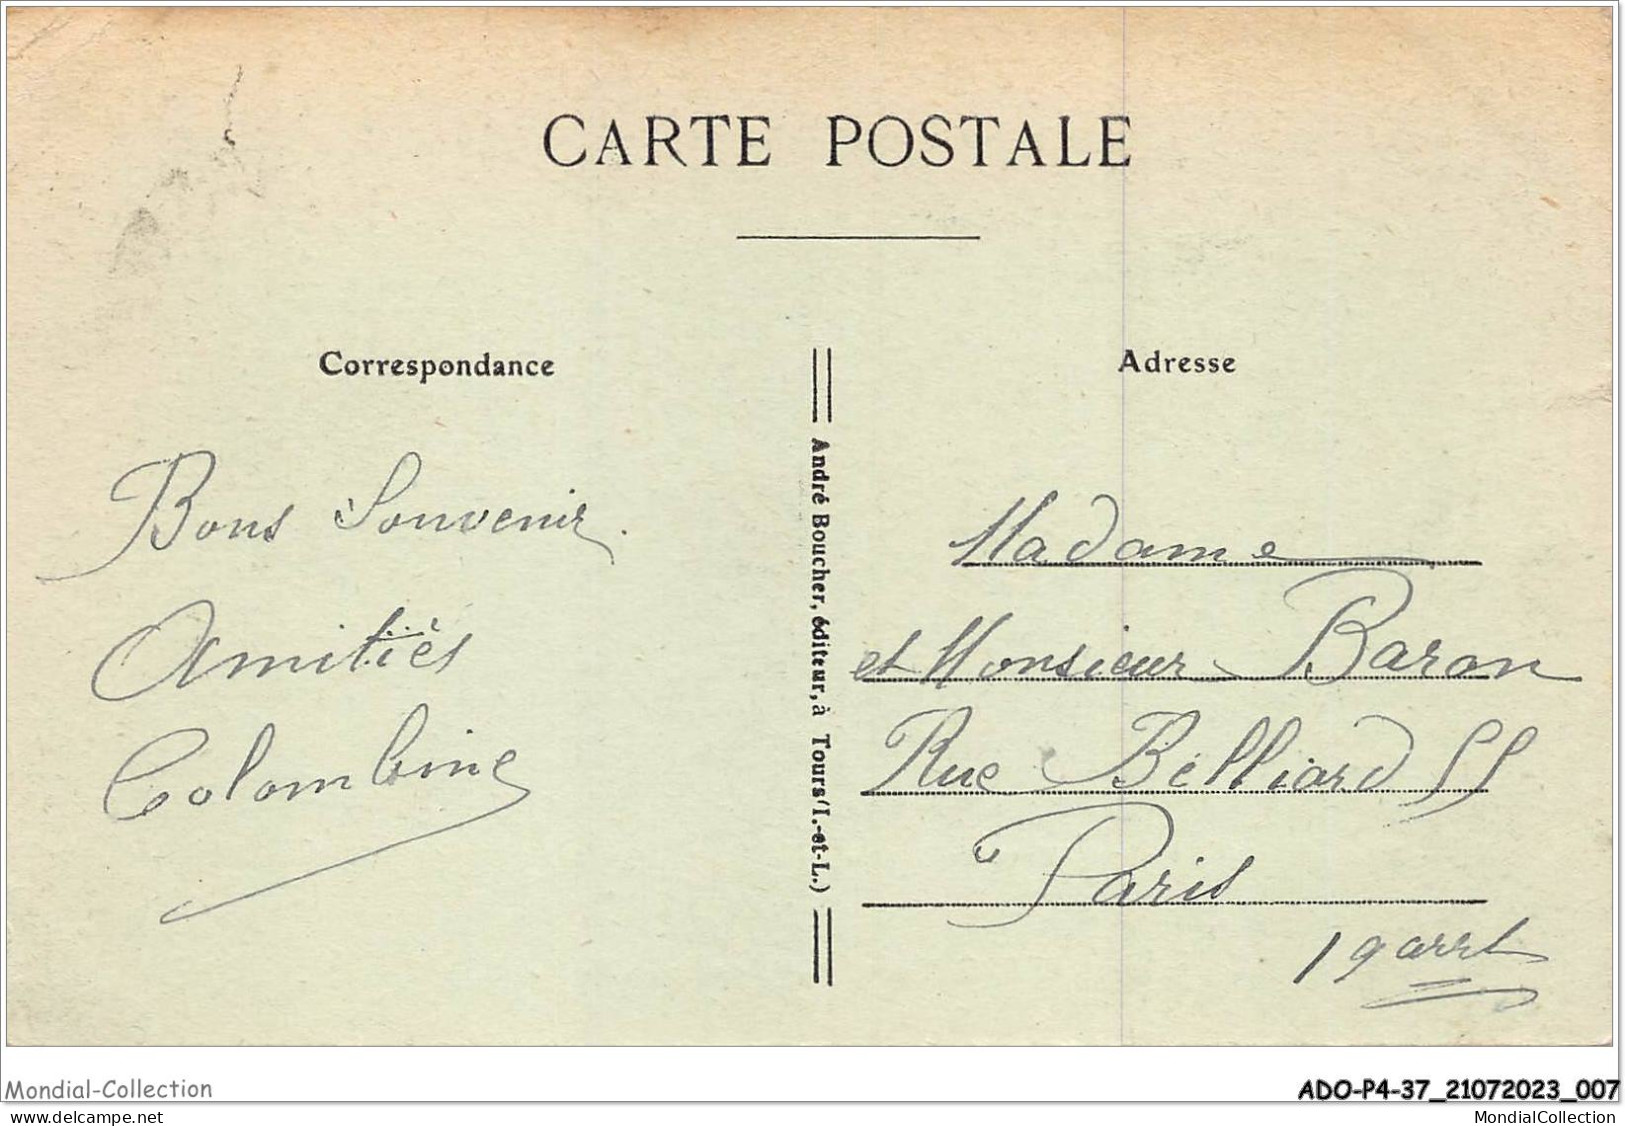 CARTE POSTALE
Correspondance
Bons Souvenir.
Amitiés
Colombine
André Boucher, éditeur, à Tours (I.-et-L.)
Adresse
Madame
et Monsieur Baron
Rue Belliard 55
Paris
19 arrt
Mondial-Collection
ADO-P4-37_21072023_007
www.delcampe.net
MondialCollection